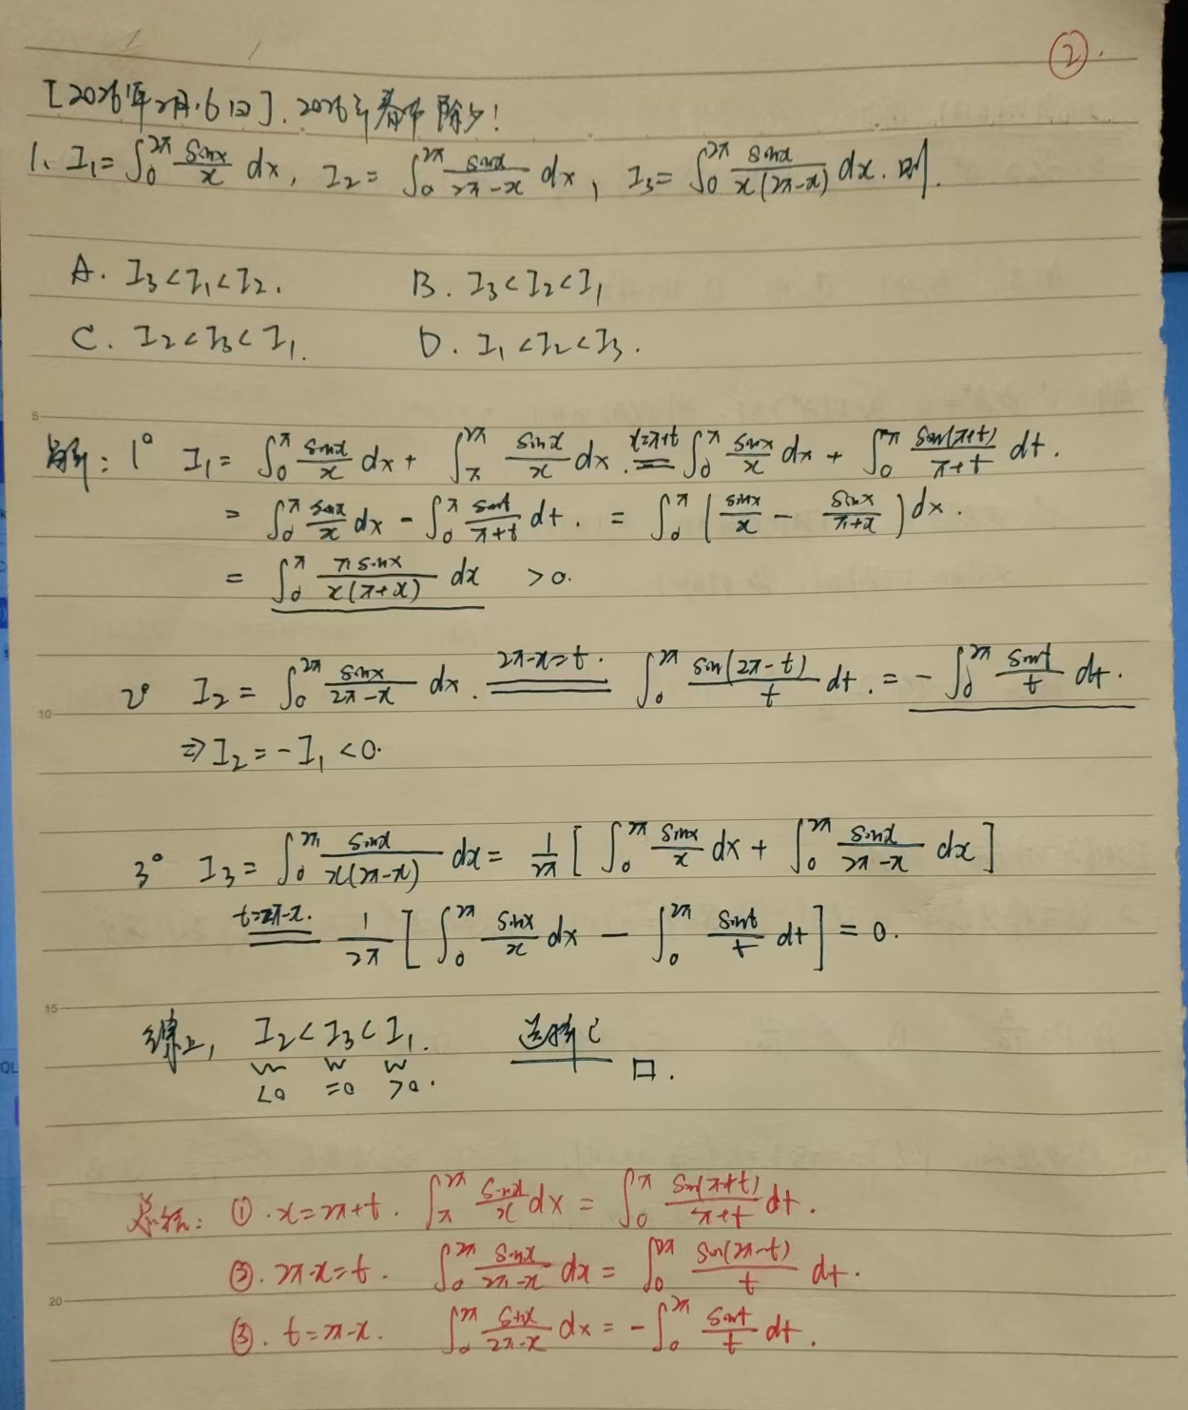 ②.
[2026年2月16日]. 2026年春节除夕!
1、I₁=∫₀^{2π} sinx/x dx, I₂=∫₀^{2π} sinx/(2π-x) dx, I₃=∫₀^{2π} sinx/(x(2π-x)) dx. 则
A. I₃<I₁<I₂. B. I₃<I₂<I₁
C. I₂<I₃<I₁. D. I₁<I₂<I₃.
5
解: 1° I₁=∫₀^π sinx/x dx+∫_π^{2π} sinx/x dx. x=π+t ═ ∫₀^π sinx/x dx+∫₀^π sin(π+t)/(π+t) dt.
=∫₀^π sinx/x dx-∫₀^π sint/(π+t) dt. =∫₀^π (sinx/x - sinx/(π+x))dx.
=∫₀^π πsinx/(x(π+x)) dx >0.
2° I₂=∫₀^{2π} sinx/(2π-x) dx. 2π-x=t. ═ ∫₀^{2π} sin(2π-t)/t dt.=-∫₀^{2π} sint/t dt.
10
⇒I₂=-I₁<0.
3° I₃=∫₀^{2π} sinx/(x(2π-x)) dx=1/2π[∫₀^{2π} sinx/x dx+∫₀^{2π} sinx/(2π-x) dx]
t=2π-x. ═ 1/2π[∫₀^{2π} sinx/x dx-∫₀^{2π} sint/t dt]=0.
15
综上, I₂<I₃<I₁. 选择C
<0 =0 >0. □.
总结: ①.x=2π+t. ∫_π^{2π} sinx/x dx=∫₀^π sin(π+t)/(π+t) dt.
②. 2π-x=t. ∫₀^{2π} sinx/(2π-x) dx=∫₀^{2π} sin(2π-t)/t dt.
20
③. t=2π-x. ∫₀^{2π} sinx/(2π-x) dx=-∫₀^{2π} sint/t dt.